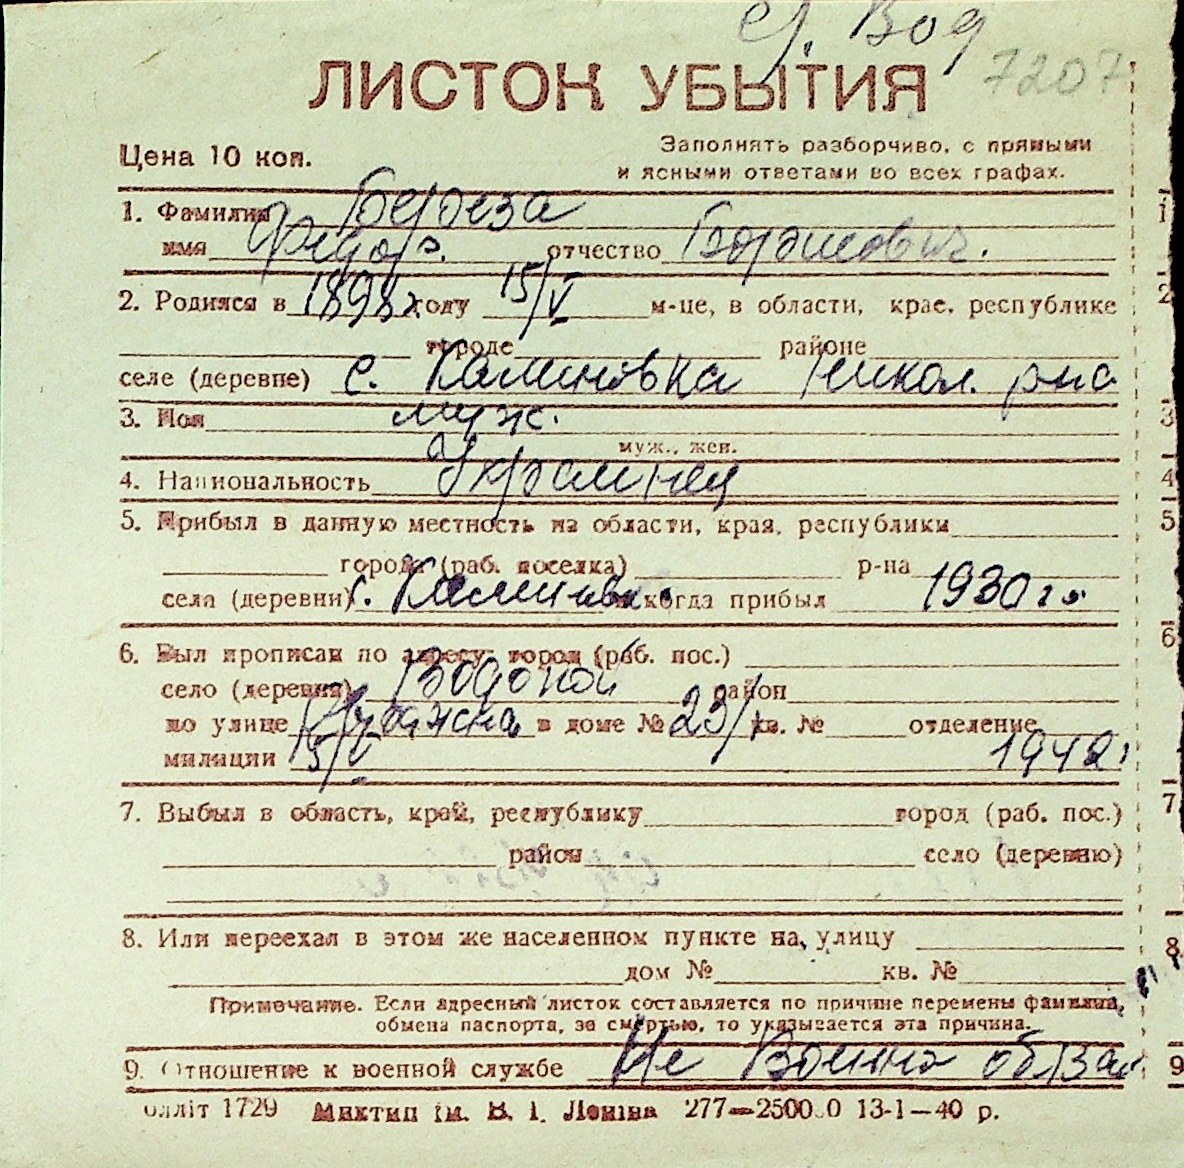 ст. Вод
7207
ЛИСТОК УБЫТИЯ
Цена 10 коп.
Заполнять разборчиво, с прямыми
и ясными ответами во всех графах.
1. Фамилия Береза
имя Федор отчество Борисович.
2. Родился в 1898 году 15/V м-це, в области, крае, республике
городе районе
селе (деревне) с. Калиновка Никол. р-на
3. Пол муж.
муж., жен.
4. Национальность Украинец
5. Прибыл в данную местность из области, края, республики
города (раб. поселка) р-на
села (деревни) с. Калиновка когда прибыл 1930 г.
6. Был прописан по адресу: город (раб. пос.)
село (деревня) Водопой район
по улице в доме № 23/1 кв. № отделение
милиции 15/V 1942
7. Выбыл в область, край, республику город (раб. пос.)
район село (деревню)
8. Или переехал в этом же населенном пункте на улицу
дом № кв. №
Примечание. Если адресный листок составляется по причине перемены фамилии,
обмена паспорта, за смертью, то указывается эта причина.
9. Отношение к военной службе Не Военно обяза
блліт 1729 Миктип ім. В. І. Леніна 277—2500 0 13-1—40 р.
1
2
3
4
5
6
7
8
9